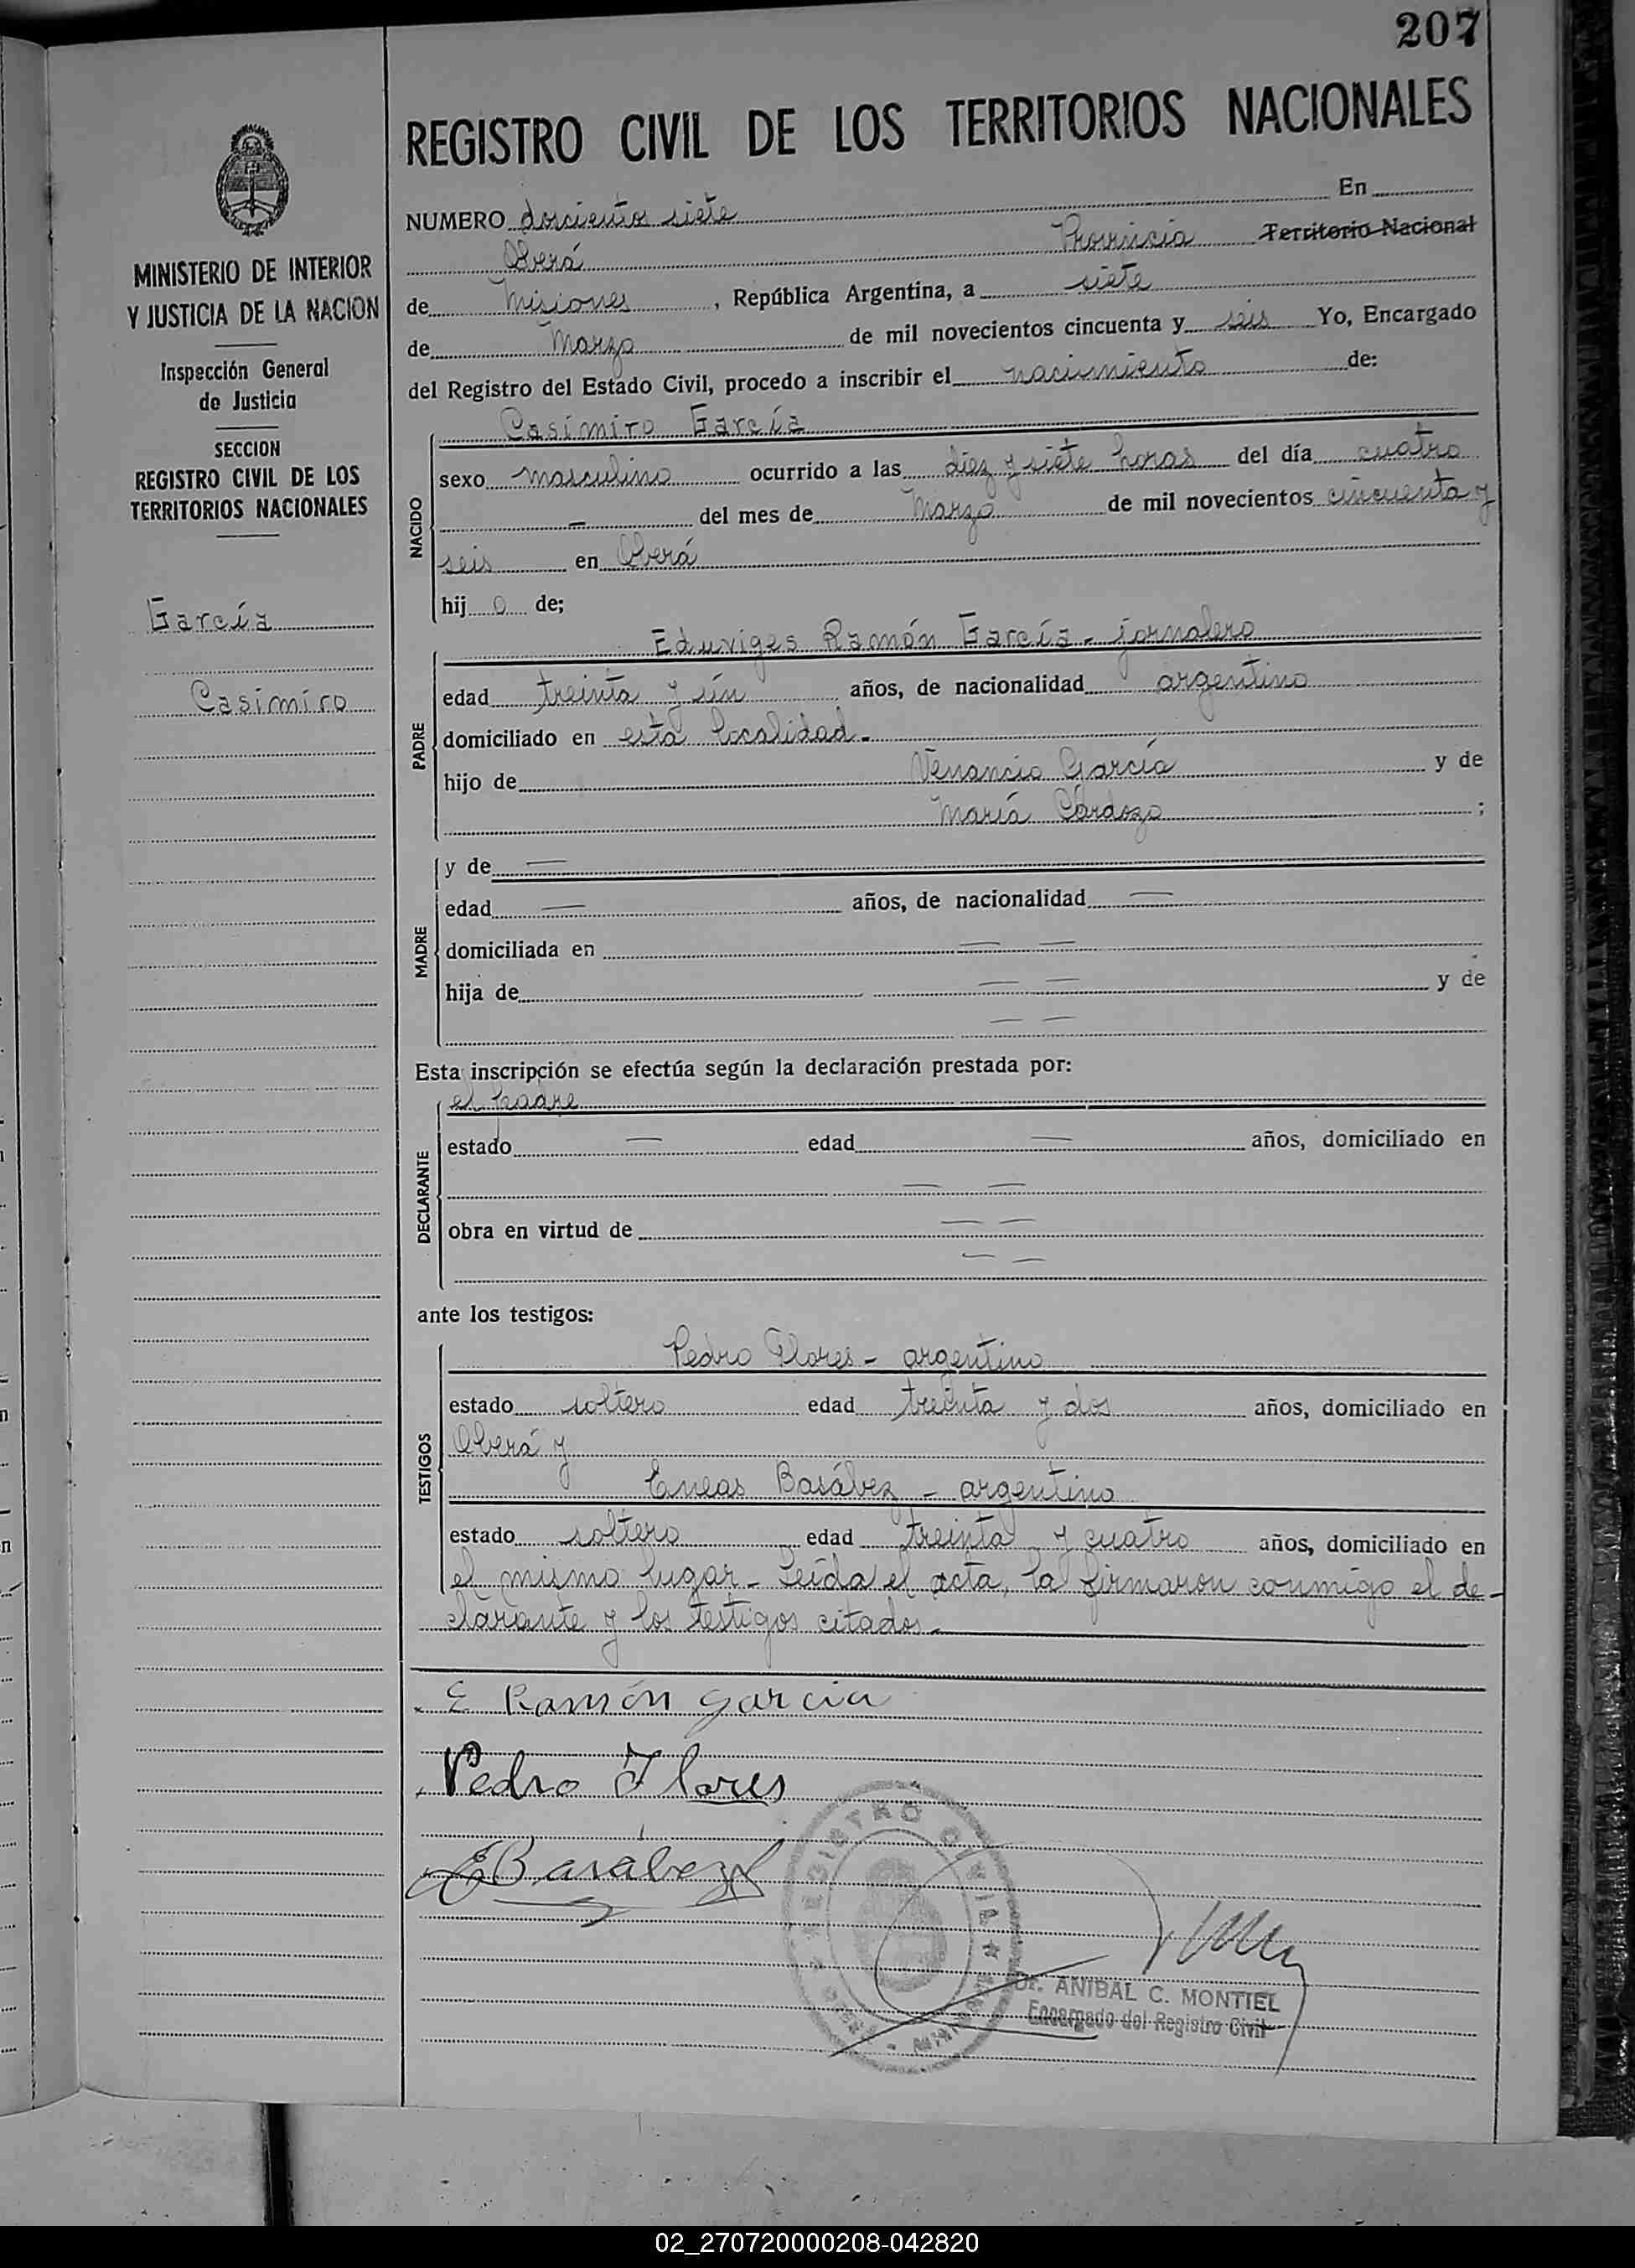 207
REGISTRO CIVIL DE LOS TERRITORIOS NACIONALES
MINISTERIO DE INTERIOR
Y JUSTICIA DE LA NACION
Inspección General
de Justicia
SECCION
REGISTRO CIVIL DE LOS
TERRITORIOS NACIONALES
García
Casimiro
NUMERO doscientos siete En
Oberá Provincia Territorio Nacional
de Misiones, República Argentina, a siete
de Marzo de mil novecientos cincuenta y seis Yo, Encargado
del Registro del Estado Civil, procedo a inscribir el nacimiento de:
NACIDO
Casimiro García
sexo masculino ocurrido a las diez y siete horas del día cuatro
— del mes de Marzo de mil novecientos cincuenta y
seis en Oberá
hij o de;
PADRE
Eduviges Ramón García - jornalero
edad treinta y ún años, de nacionalidad argentino
domiciliado en esta localidad.-
hijo de Venancio García y de
María Cardozo ;
MADRE
y de —
edad — años, de nacionalidad —
domiciliada en — —
hija de — — y de
— —
Esta inscripción se efectúa según la declaración prestada por:
DECLARANTE
el padre
estado — edad — años, domiciliado en
— —
obra en virtud de — —
— —
ante los testigos:
TESTIGOS
Pedro Flores - argentino
estado soltero edad treinta y dos años, domiciliado en
Oberá y
Eneas Basábez - argentino
estado soltero edad treinta y cuatro años, domiciliado en
el mismo lugar - Leída el acta, la firmaron conmigo el de-
clarante y los testigos citados.-
E Ramón garcia
Pedro Flores
E Basábez
REGISTRO CIVIL
Dr. ANIBAL C. MONTIEL
Encargado del Registro Civil
02_270720000208-042820